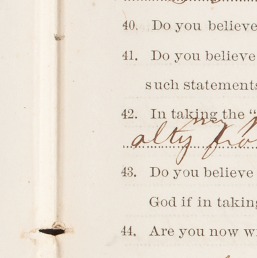 40. Do you believe
41. Do you believe
such statements
42. In taking the "
my
alty fro
43. Do you believe
God if in taking
44. Are you now wi